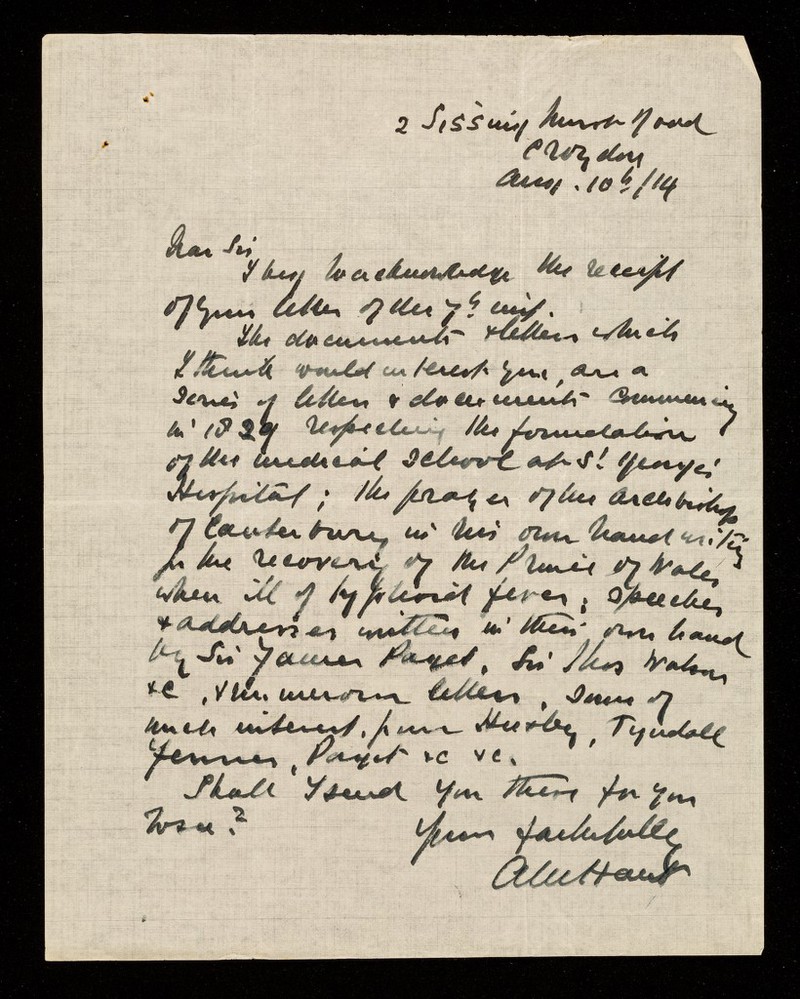 2 Sissinghurst Road
Croydon
Aug. 10th/14
Dear Sir
I beg to acknowledge the receipt
of your letter of the 7th inst.
The documents & letters which
I think would interest you, are a
series of letters & documents commencing
in 1829 respecting the foundation
of the medical School at St. George's
Hospital; the prayer of the Archbishop
of Canterbury in his own handwriting
for the recovery of the Prince of Wales
when ill of typhoid fever; speeches
& addresses written in their own hand
by Sir James Paget, Sir Thos Watson
&c, & numerous letters, some of
much interest, from Huxley, Tyndall
Jenner, Paget &c &c.
Shall I send you these for you
to see?
Yours faithfully